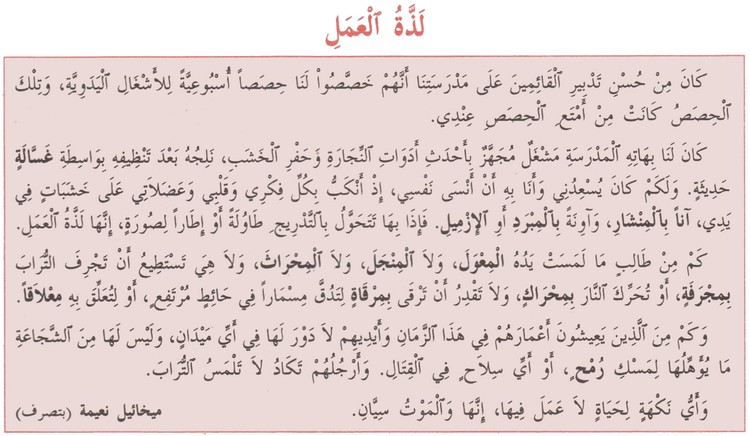 لَذَّةُ ٱلْعَمَلِ
كَانَ مِنْ حُسْنِ تَدْبِيرِ ٱلْقَائِمِينَ عَلَى مَدْرَسَتِنَا أَنَّهُمْ خَصَّصُواْ لَنَا حِصَصاً أُسْبُوعِيَّةً لِلأَشْغَالِ ٱلْيَدَوِيَّةِ، وَتِلْكَ
ٱلْحِصَصُ كَانَتْ مِنْ أَمْتَعِ ٱلْحِصَصِ عِنْدِي.
كَانَ لَنَا بِهَاتِهِ ٱلْمَدْرَسَةِ مَشْغَلٌ مُجَهَّزٌ بِأَحْدَثِ أَدَوَاتِ ٱلنِّجَارَةِ وَحَفْرِ ٱلْخَشَبِ، نَلِجُهُ بَعْدَ تَنْظِيفِهِ بِوَاسِطَةِ غَسَّالَةٍ
حَدِيثَةٍ. وَلَكَمْ كَانَ يُسْعِدُنِي وَأَنَا بِهِ أَنْ أَنْسَى نَفْسِي، إِذْ أَنْكَبُّ بِكُلِّ فِكْرِي وَقَلْبِي وَعَضَلَاتِي عَلَى خَشَبَاتٍ فِي
يَدِي، آناً بِٱلْمِنْشَارِ، وَآوِنَةً بِٱلْمِبْرَدِ أَوِ ٱلْإِزْمِيلِ. فَإِذَا بِهَا تَتَحَوَّلُ بِٱلتَّدْرِيجِ طَاوُلَةً أَوْ إِطَاراً لِصُورَةٍ، إِنَّهَا لَذَّةُ ٱلْعَمَلِ.
كَمْ مِنْ طَالِبٍ مَا لَمَسَتْ يَدُهُ ٱلْمِعْوَلَ، وَلاَ ٱلْمِنْجَلَ، وَلاَ ٱلْمِحْرَاثَ، وَلاَ هِيَ تَسْتَطِيعُ أَنْ تَجْرِفَ ٱلتُّرَابَ
بِمِجْرَفَةٍ، أَوْ تُحَرِّكَ ٱلنَّارَ بِمِحْرَاكٍ، وَلاَ تَقْدِرُ أَنْ تَرْقَى بِمِرْقَاةٍ لِتَدُقَّ مِسْمَاراً فِي حَائِطٍ مُرْتَفِعٍ، أَوْ لِتُعَلِّقَ بِهِ مِعْلَاقاً.
وَكَمْ مِنَ ٱلَّذِينَ يَعِيشُونَ أَعْمَارَهُمْ فِي هَذَا ٱلزَّمَانِ وَأَيْدِيهِمْ لاَ دَوْرَ لَهَا فِي أَيِّ مَيْدَانٍ، وَلَيْسَ لَهَا مِنَ ٱلشَّجَاعَةِ
مَا يُؤَهِّلُهَا لِمَسْكِ رُمْحٍ، أَوْ أَيِّ سِلاَحٍ فِي ٱلْقِتَالِ. وَأَرْجُلُهُمْ تَكَادُ لاَ تَلْمَسُ ٱلتُّرَابَ.
وَأَيُّ نَكْهَةٍ لِحَيَاةٍ لاَ عَمَلَ فِيهَا، إِنَّهَا وَٱلْمَوْتُ سِيَّانِ. ميخائيل نعيمة (بتصرف)